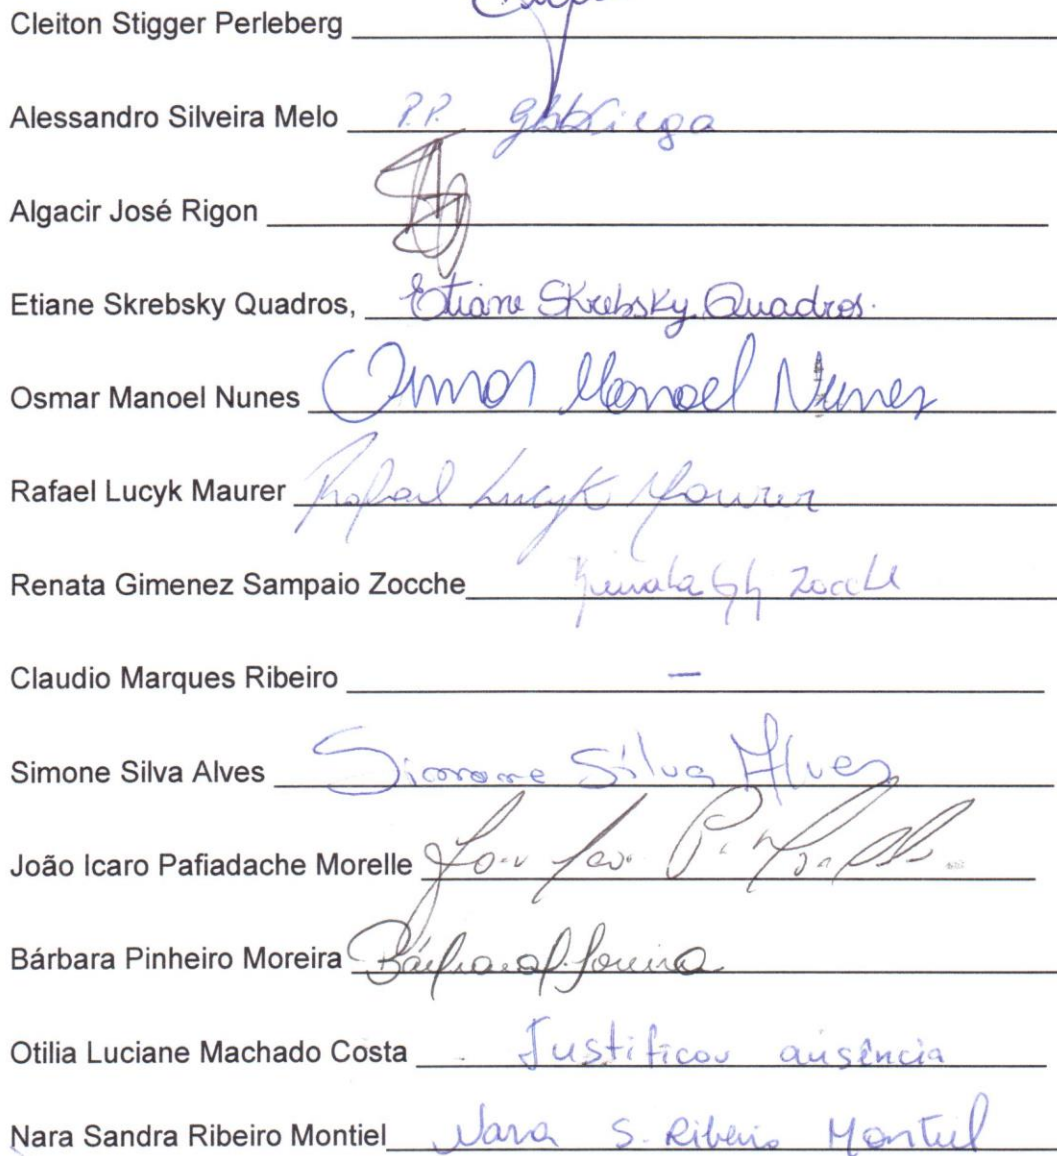 Cleiton Stigger Perleberg
Alessandro Silveira Melo P.P.
Algacir José Rigon
Etiane Skrebsky Quadros, Etiane Skrebsky Quadros.
Osmar Manoel Nunes Osmar Manoel Nunes
Rafael Lucyk Maurer Rafael Lucyk Maurer
Renata Gimenez Sampaio Zocche Renata Zocche
Claudio Marques Ribeiro —
Simone Silva Alves Simone Silva Alves
João Icaro Pafiadache Morelle
Bárbara Pinheiro Moreira
Otilia Luciane Machado Costa Justificou ausência
Nara Sandra Ribeiro Montiel Nara S. Ribeiro Montiel